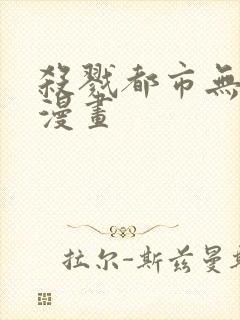 殺戮都市無
漫畫
拉尔-斯兹曼